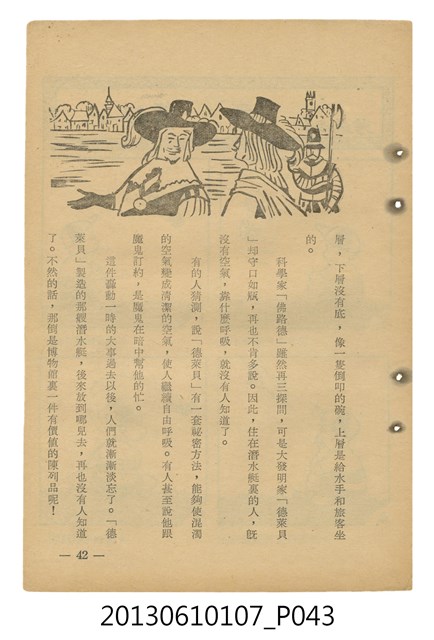 層，下層沒有底，像一隻倒叩的碗，上層是給水手和旅客坐
的。
科學家「佛路德」雖然再三探問，可是大發明家「德萊貝
」却守口如瓶，再也不肯多說。因此，住在潛水艇裏的人，旣
沒有空氣，靠什麼呼吸，就沒有人知道了。
有的人猜測，說「德萊貝」有一套祕密方法，能夠使混濁
的空氣變成清潔的空氣，使人繼續自由呼吸。有人甚至說他跟
魔鬼訂約，是魔鬼在暗中幫他的忙。
這件轟動一時的大事過去以後，人們就漸漸淡忘了。「德
萊貝」製造的那艘潛水艇，後來放到哪兒去，再也沒有人知道
了。不然的話，那倒是博物館裏一件有價值的陳列品呢！
— 42 —
20130610107_P043